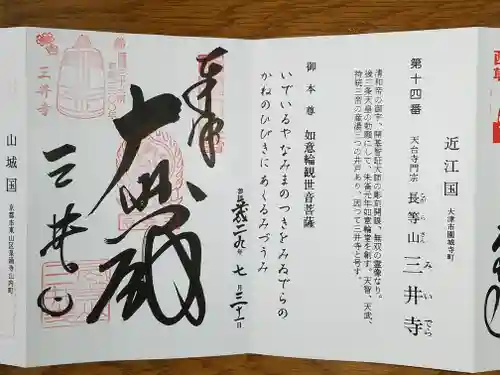 近江国
大津市園城寺町
第十四番 天台寺門宗 長等山 三井寺
ながら さん みい でら
清和帝の御宇、開基智証大師の彫刻開眼、無双の霊像なり。
後三条天皇の勅願にして、朱雀元年如意輪堂を創す。天智、天武、
持統三帝の産湯三つの井戸あり、因つて三井寺と号す。
御本尊 如意輪観世音菩薩
いでいるやなみまのつきをみゐでらの
かねのひびきに あくるみづうみ
奉拝
大悲殿
三井寺
三井寺
七月三十一日
山城国
京都市東山区泉涌寺山内町